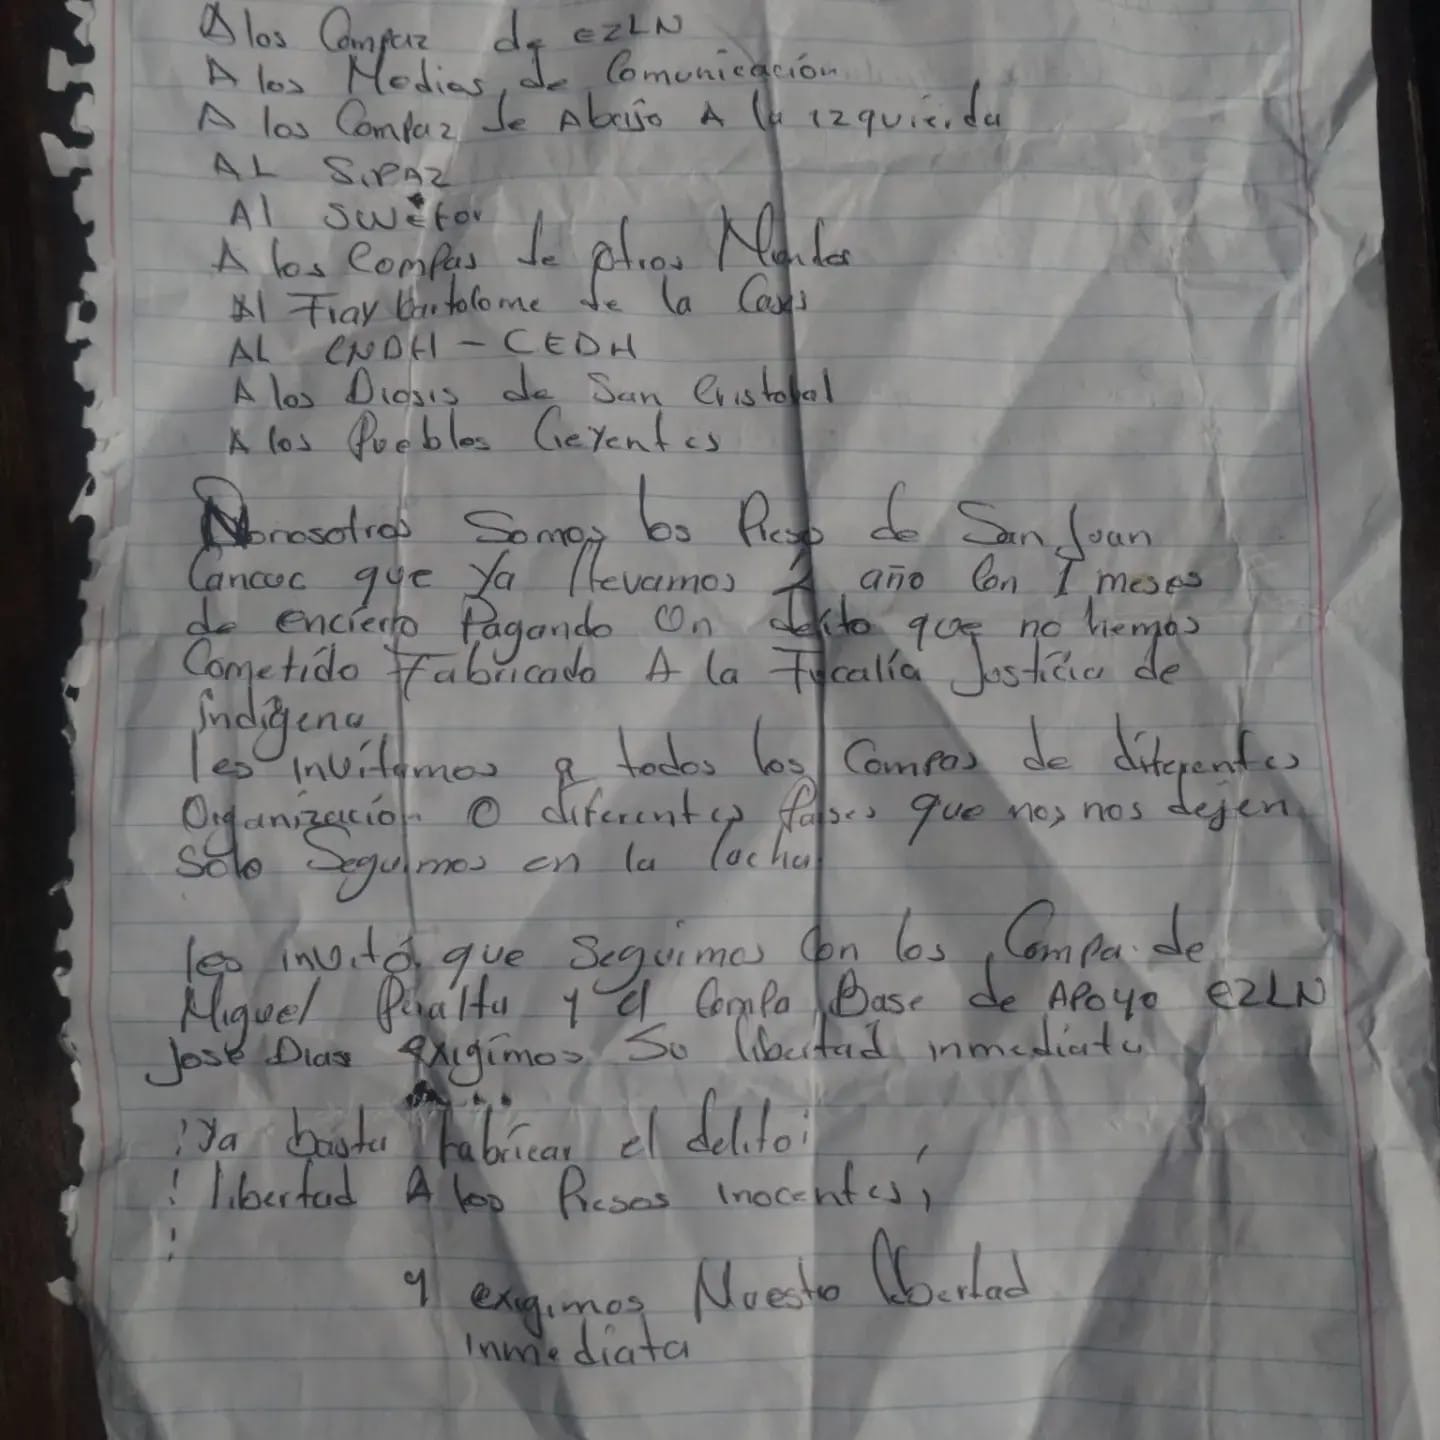 A los Compaz de EZLN
A los Medios de Comunicación
A los Compaz de Abajo A la izquierda
AL SiPAZ
Al swefor
A los Compas de otros Mundos
Al Fray bartolome de la Casas
AL CNDH - CEDH
A los Diosis de San Cristobal
A los Pueblos Creyentes
Nonosotros Somos los Preso de San Juan
Cancuc que ya llevamos año Con 1 meses
de encierro Pagando Un delito que no hemos
Cometido Fabricado A la Fiscalía Josticia de
indigena
les invitamos a todos los Compas de diferentes
Organización O diferentes que nos nos dejen
solo Seguimos en la lucha
les invitó que Seguimos Con los Compa de
Miguel Peralta y el Compa Base de APoyo EZLN
José Dias exigimos Su libertad inmediata
¡Ya basta fabricar el delito¡
¡ libertad A los Presos inocentes,
y exigimos Nuestro libertad
inmediata